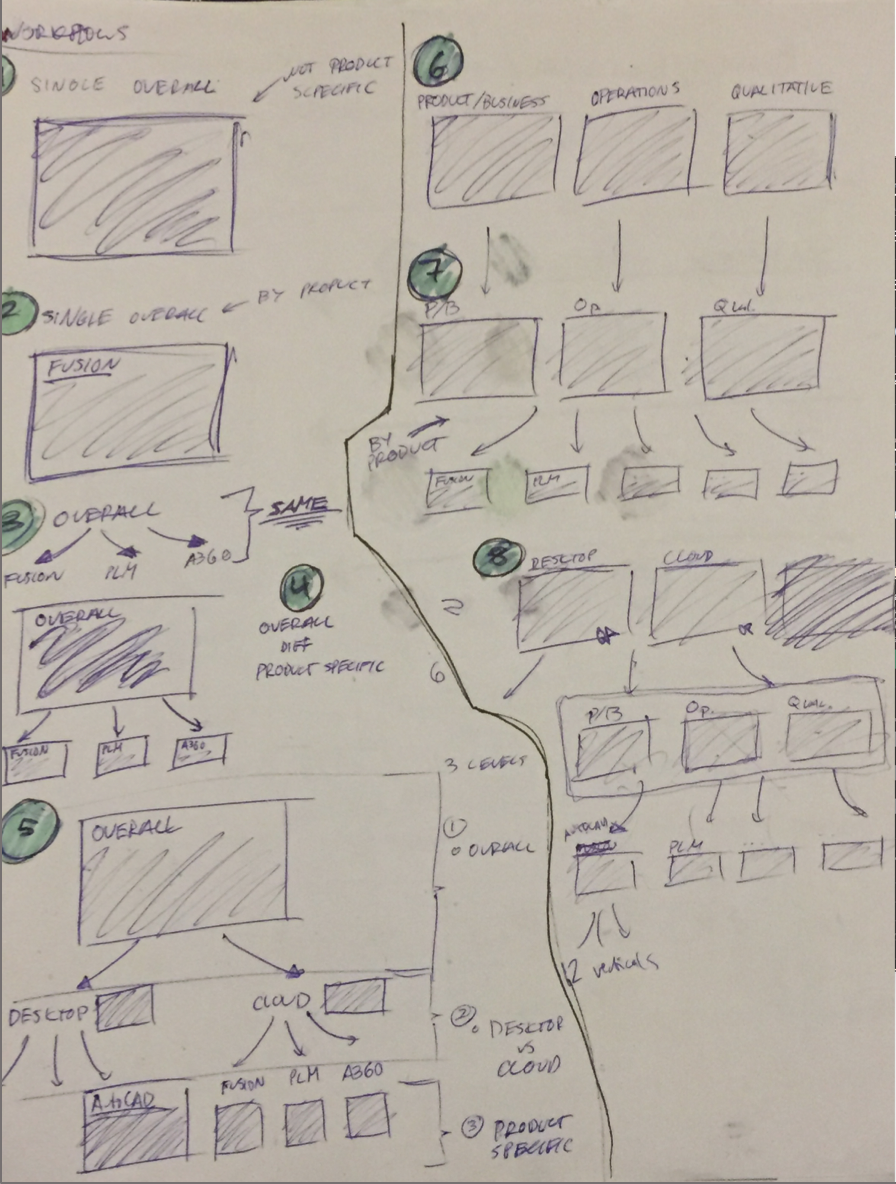 WORKFLOWS
1
SINGLE OVERALL
NOT PRODUCT
SCPECIFIC
2
SINGLE OVERALL
BY PRODUCT
FUSION
3
OVERALL
SAME
FUSION
PLM
A360
OVERALL
FUSION
PLM
A360
4
OVERALL
DIFF
PRODUCT SPECIFIC
5
OVERALL
DESKTOP
CLOUD
AutoCAD
FUSION
PLM
A360
2
6
3 LEVELS
1
OVERALL
2
DESKTOP
VS
CLOUD
3
PRODUCT
SPECIFIC
6
PRODUCT/BUSINESS
OPERATIONS
QUALITATIVE
7
P/B
Op.
QUAL.
BY
PRODUCT
FUSION
PLM
8
DESKTOP
CLOUD
OR
P/B
Op.
QUAL.
AUTOCAD
PLM
...
12 verticals